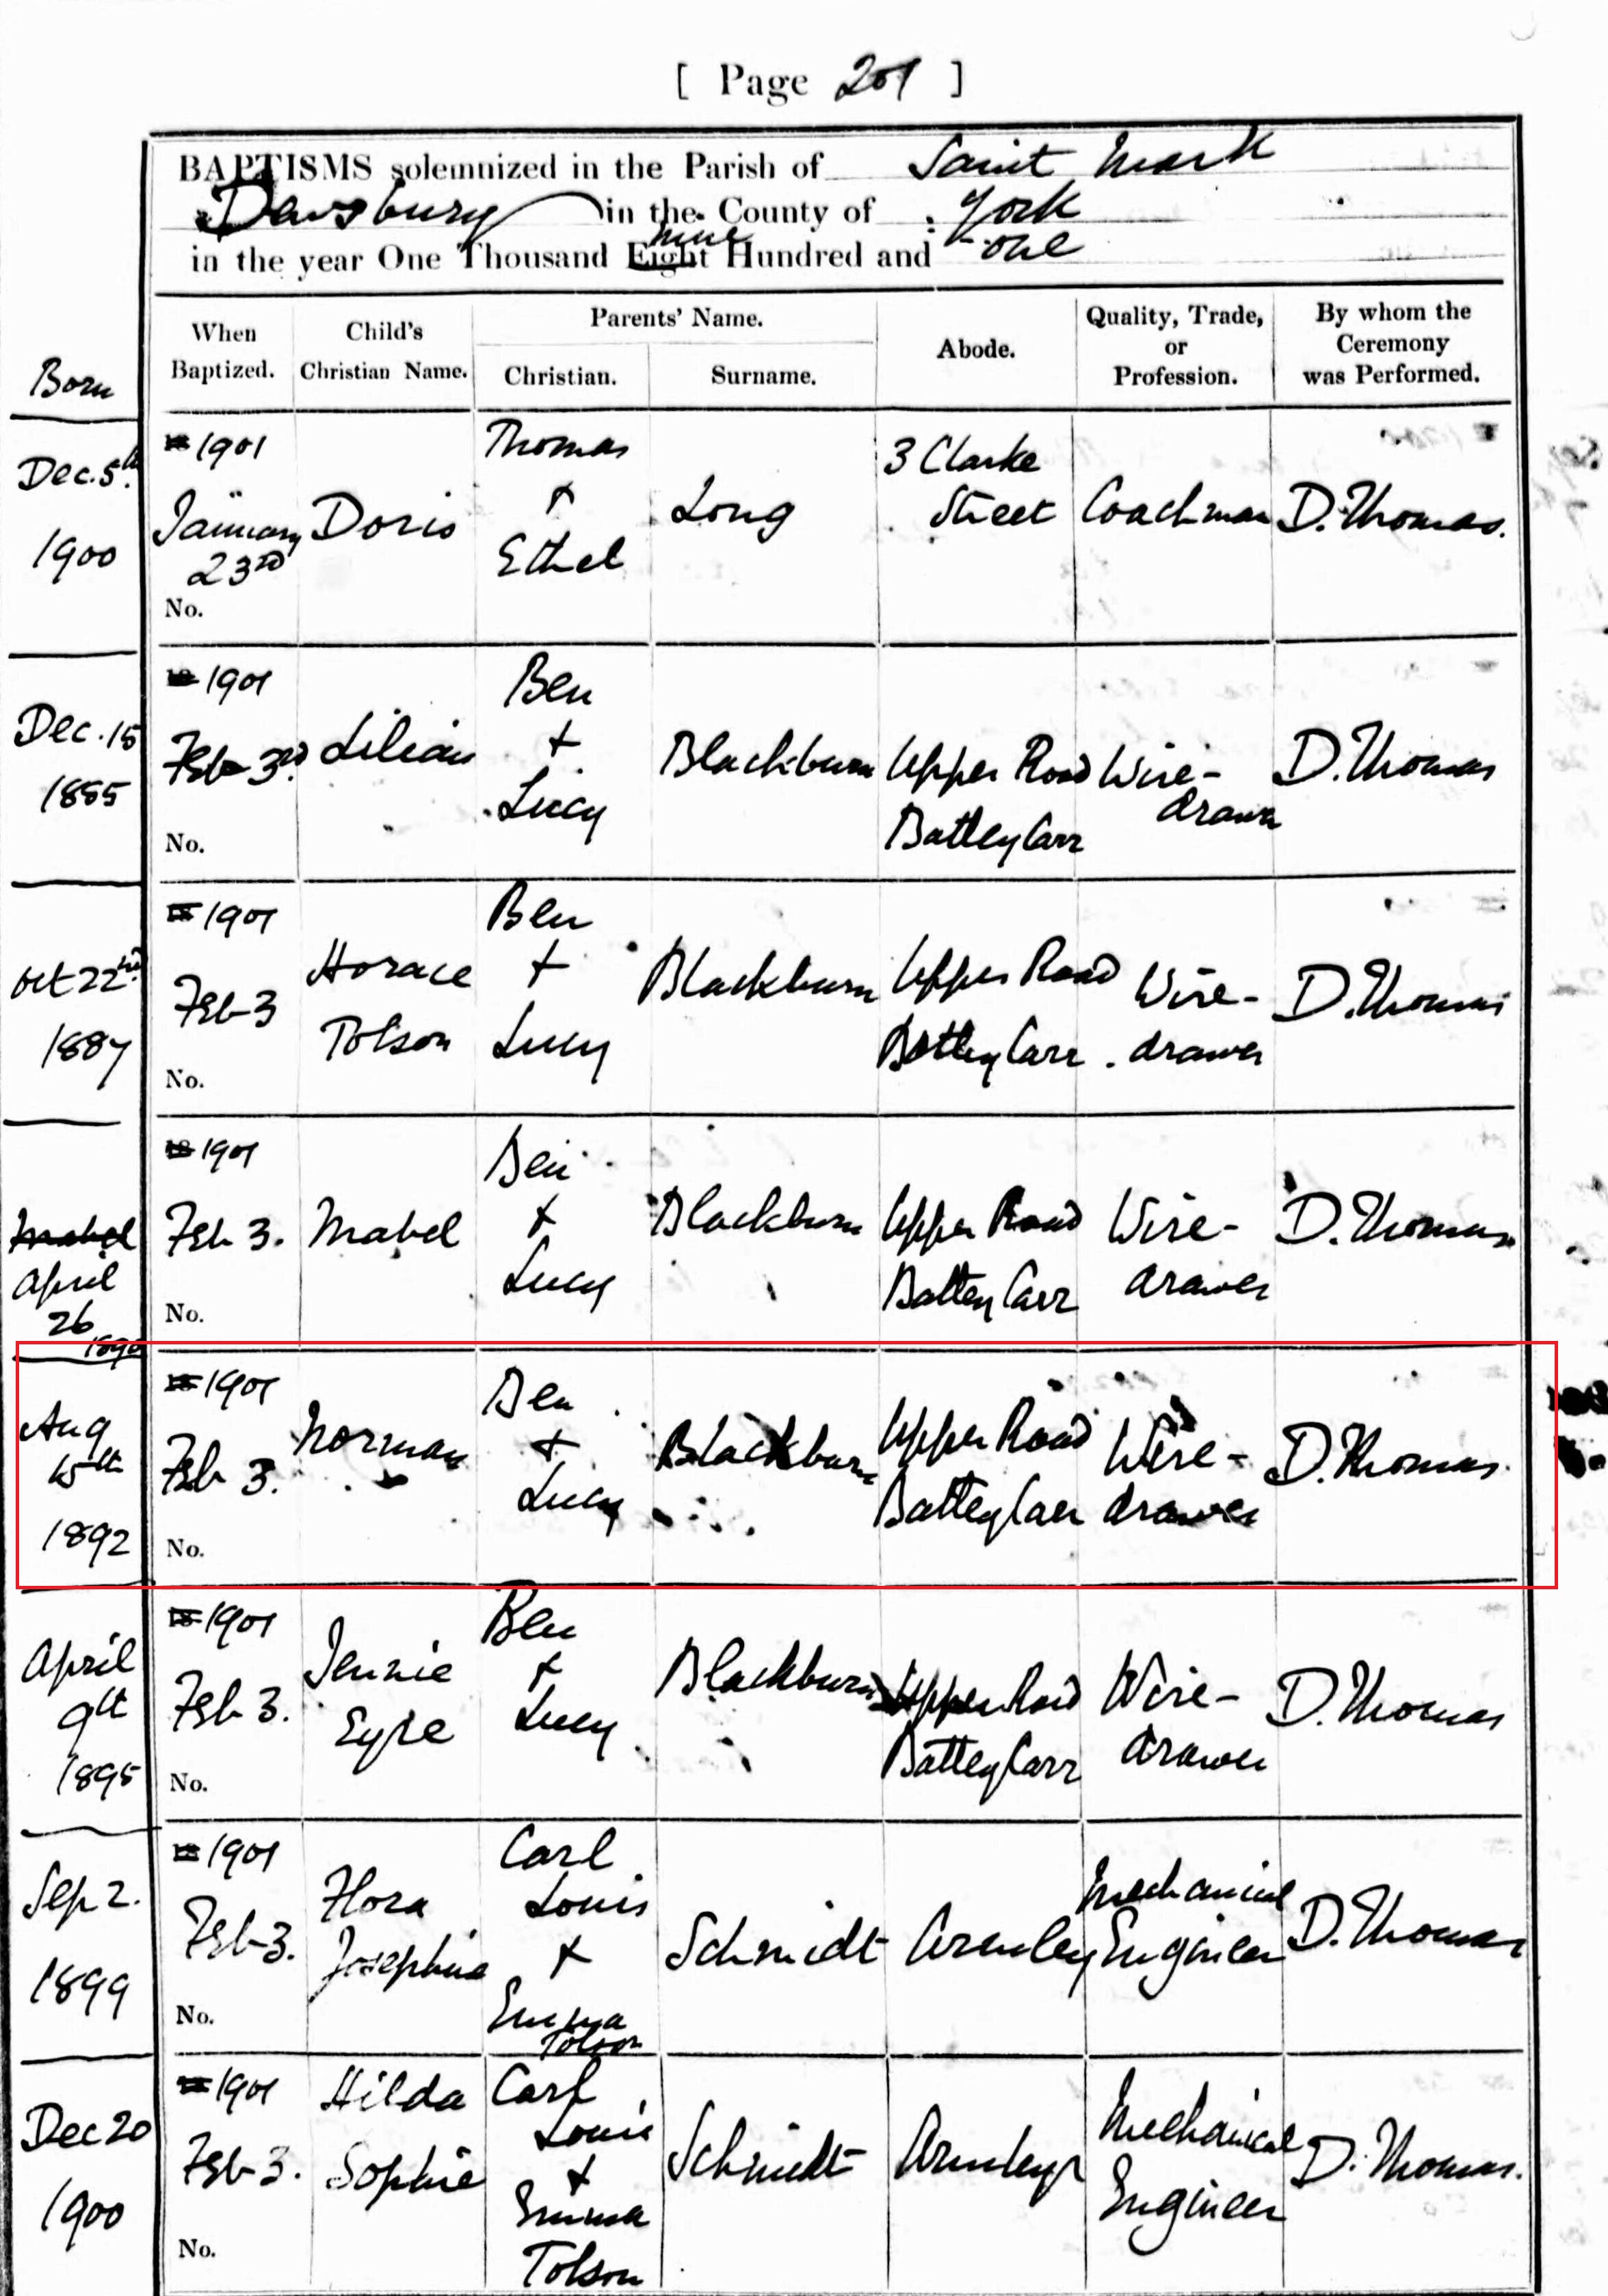 [ Page 201 ]
BAPTISMS solemnized in the Parish of Saint Mark
Dewsbury in the County of York
in the year One Thousand Eight nine Hundred and one
Born
When Baptized.
Child's Christian Name.
Parents' Name.
Christian.
Surname.
Abode.
Quality, Trade, or Profession.
By whom the Ceremony was Performed.
Dec. 5th
1900
1901
January
23rd
No.
Doris
Thomas
+
Ethel
Long
3 Clarke
Street
Coachman
D. Thomas.
Dec. 15
1885
1901
Feb 3rd.
No.
Lilian
Ben
+
Lucy
Blackburn
Upper Road
Batley Carr
Wire-
drawer
D. Thomas
Oct 22nd
1887
1901
Feb 3
No.
Horace
Tolson
Ben
+
Lucy
Blackburn
Upper Road
Batley Carr
Wire-
drawer
D. Thomas
Mabel
April
26
1890
1901
Feb 3.
No.
Mabel
Ben
+
Lucy
Blackburn
Upper Road
Batley Carr
Wire-
drawer
D. Thomas
Aug
15th
1892
1901
Feb 3.
No.
Norman
Ben
+
Lucy
Blackburn
Upper Road
Batley Carr
Wire-
drawer
D. Thomas.
April
9th
1895
1901
Feb 3.
No.
Jennie
Eyre
Ben
+
Lucy
Blackburn
Upper Road
Batley Carr
Wire-
drawer
D. Thomas
Sep 2.
1899
1901
Feb 3.
No.
Flora
Josephine
Carl
Louis
+
Emma
Tolson
Schmidt
Armley
Mechanical
Engineer
D. Thomas
Dec 20
1900
1901
Feb 3.
No.
Hilda
Sophie
Carl
Louis
+
Emma
Tolson
Schmidt
Armley
Mechanical
Engineer
D. Thomas.